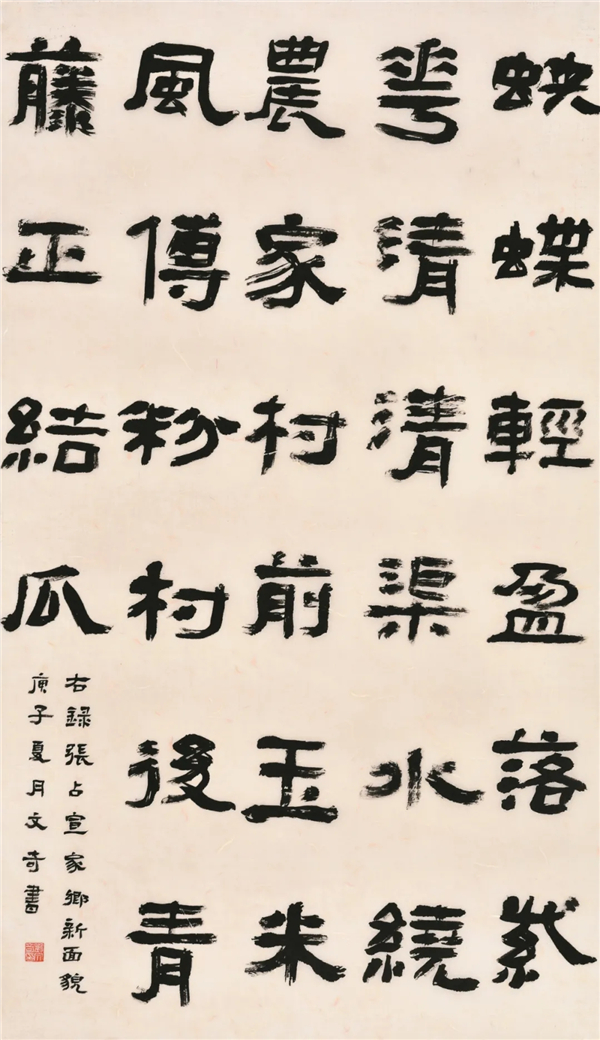 蛺蝶輕盈落紫
花清清渠水繞
農家村前玉米
風傳粉村後青
藤正結瓜
右錄張占宣家鄉新面貌
庚子夏月文奇書